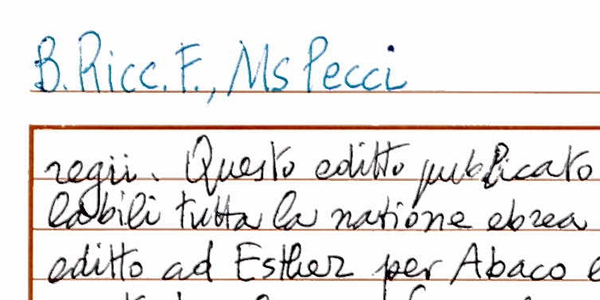 B. Ricc. F., Ms Pecci
regii. Questo editto pubblicato
labili tutta la natione ebrea
editto ad Esther per Abaco e